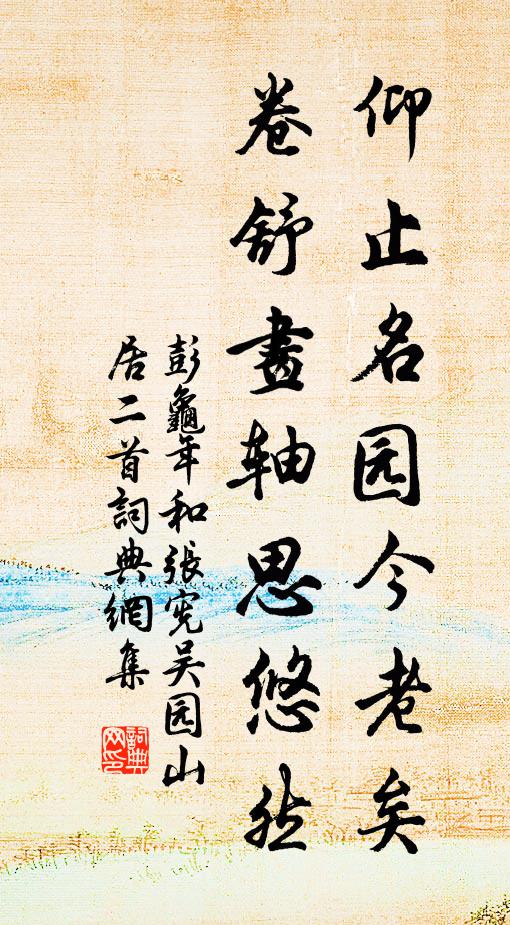 仰止名园今老矣
卷舒畫轴思悠然
彭龜年和張宪吴园山
居二首詞典網集
詞典网印